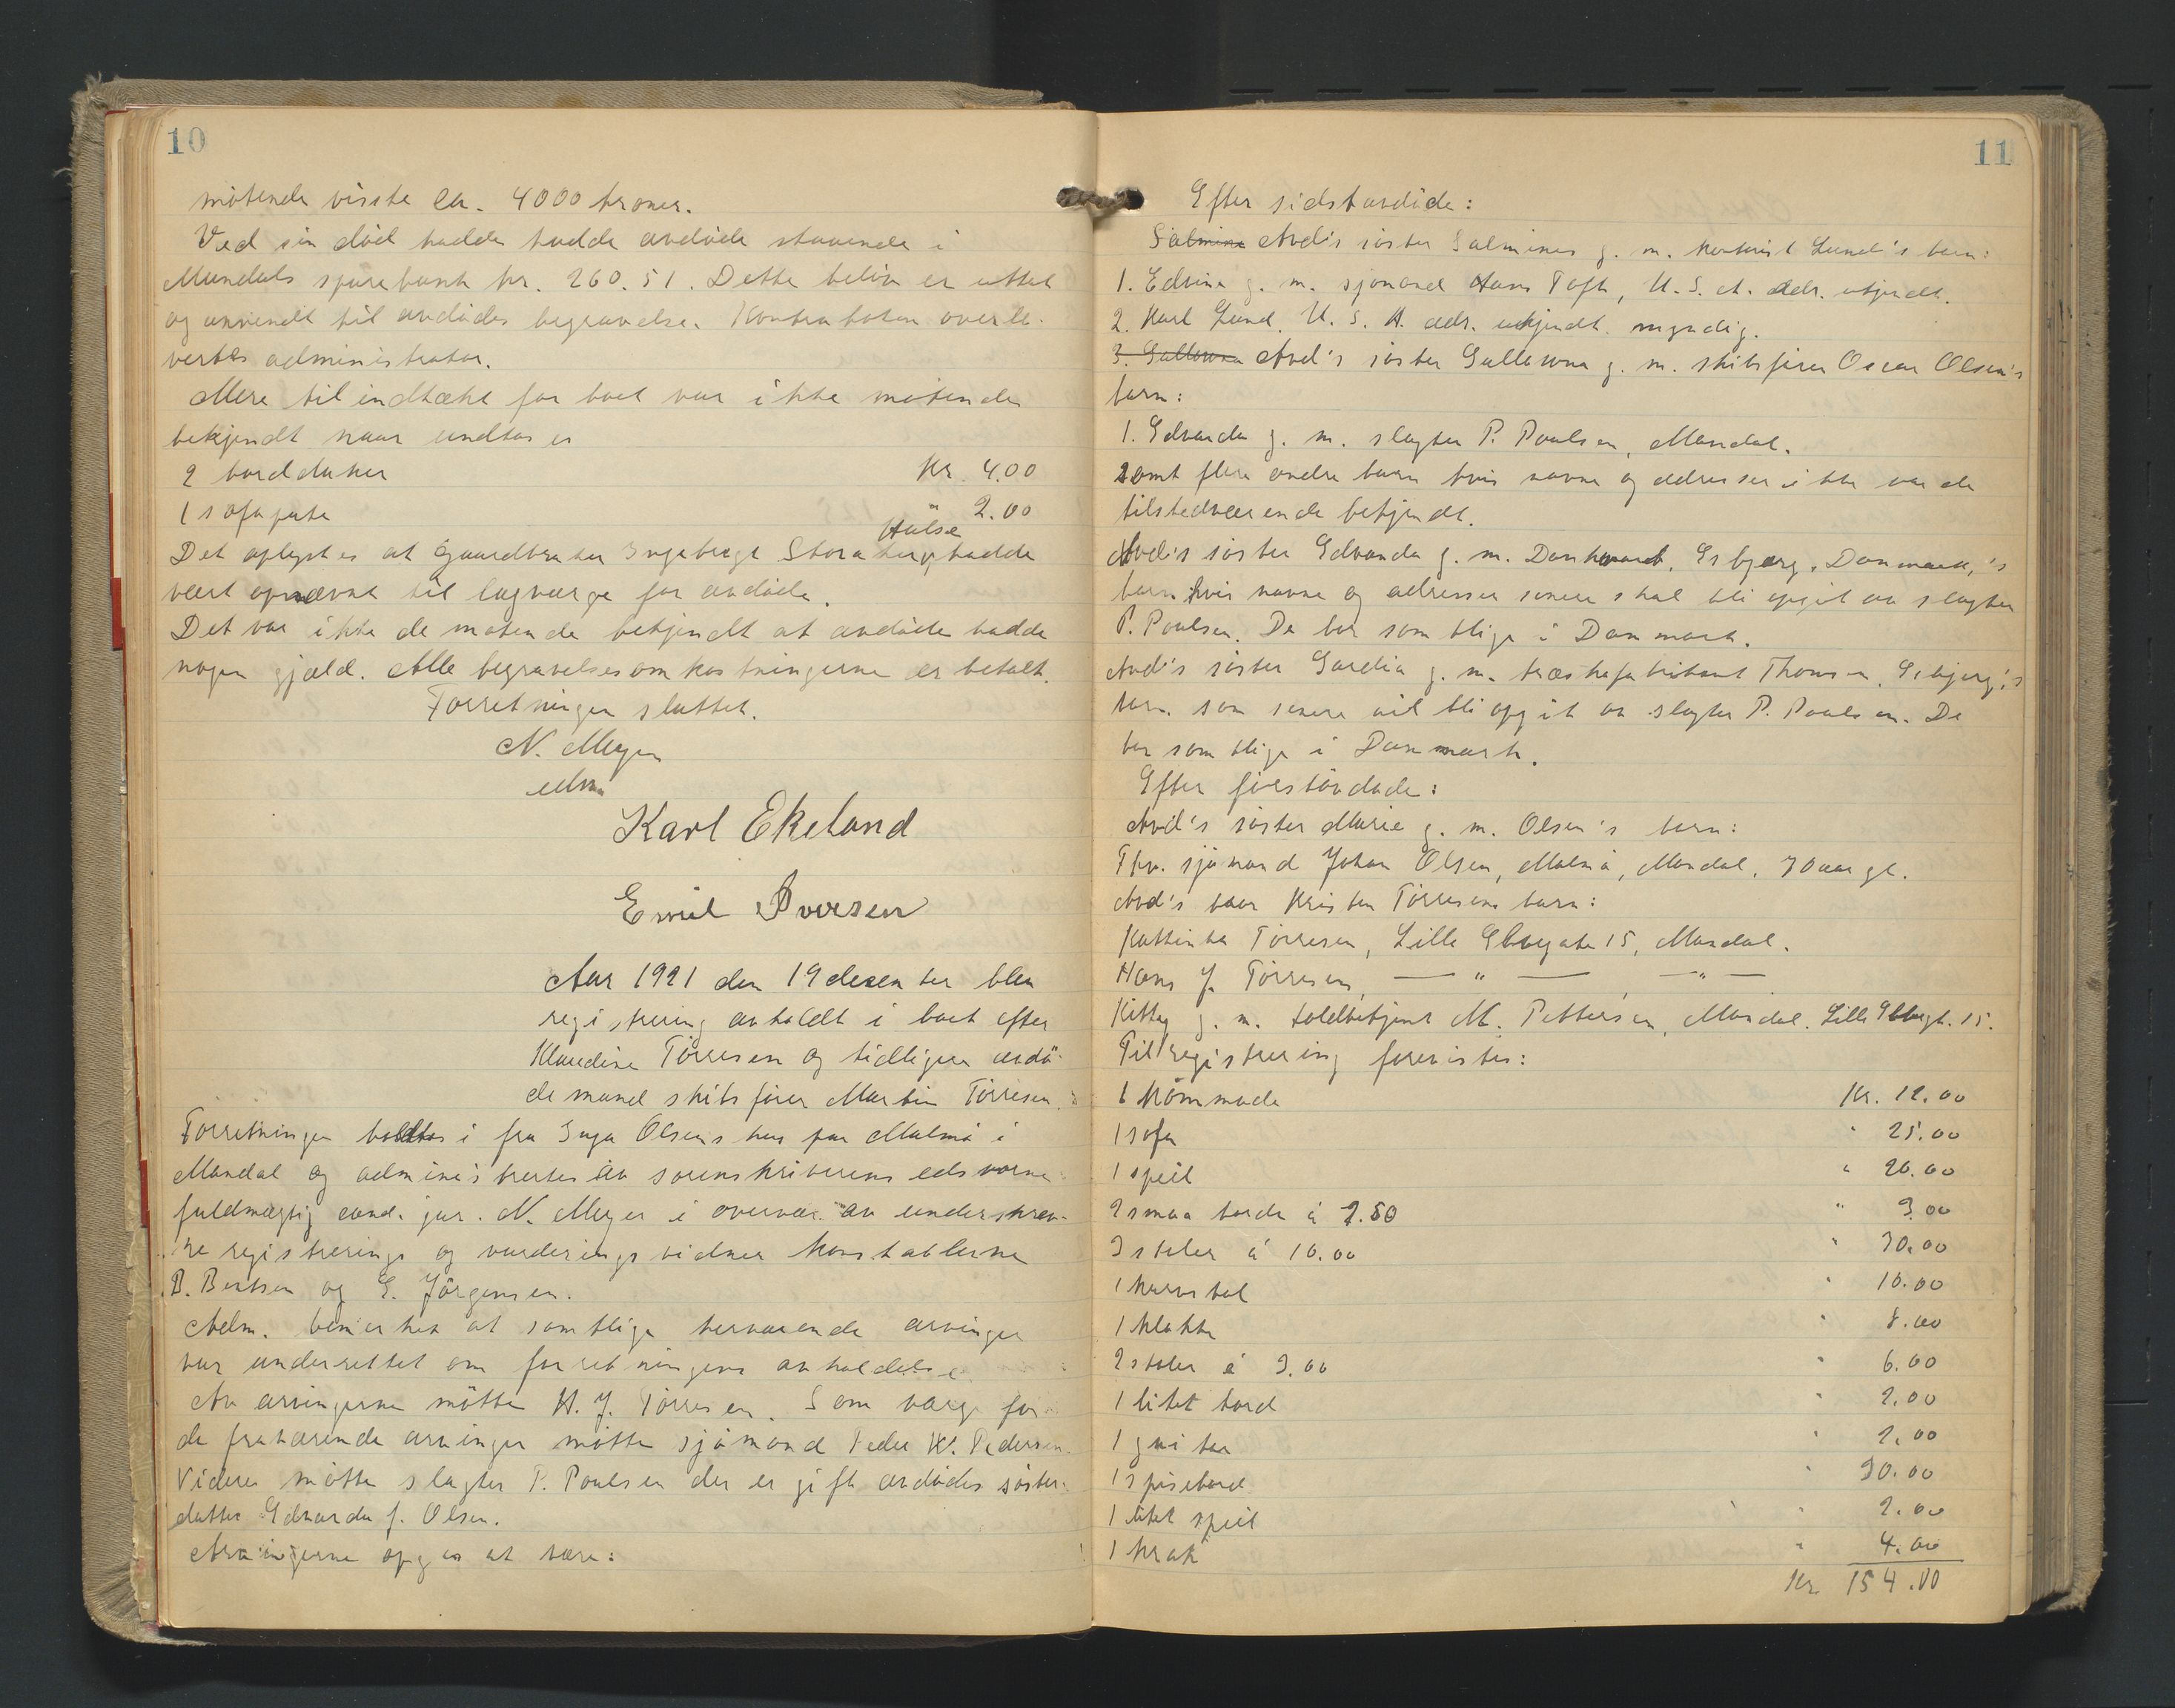 10
møtende visste ca. 4000 kroner.
Ved sin död hadde hadde avdöde staaende i
Mandals sparebank kr. 260.51. Dette belöp er uttat
og anvendt til avdödes begravelse. Kontraboken overle-
vertes administrator.
Mere til indtækt for boet var ikke mötende
bekjendt naar undtas er
2 bordduker Kr. 4.00
1 sofapute " 2.00
Det oplystes at gaardbruker Ingebregt Storaker, Halse hadde
vært opnævnt til lagværge for avdöde.
Det var ikke de mötende bekjendt at avdöde hadde
nogen gjæld. Alle begravelsesomkostningerne er betalt.
Forretningen sluttet.
N. Meyer
edsv.
Karl Ekeland
Emil Iversen
Aar 1921 den 19 desember blev
registrering avholdt i boet efter
Klaudine Törresen og tidligere avdö-
de mand skibsförer Martin Törresen.
Forretningen holdtes i fru Inga Olsens hus paa Malmö i
Mandal og administrertes av sorenskriverens edsvorne
fuldmægtig cand. jur. N. Meyer i overvær av underskrev-
ne registrerings og vurderingsvidner konstablerne
B. Bertsen og E. Jörgensen.
Adm. bemerket at samtlige herværende arvinger
var underrettet om forretningens avholdelse.
Av arvingerne mötte H. J. Törresen. Som værge for
de fraværende arvinger mötte sjömand Peder W. Pedersen.
Videre mötte slagter P. Poulsen der er gift avdödes söster-
datter Edvarda f. Olsen.
Arvingerne opgis at være:
11
Efter sidstavdöde:
Salmine Avd's söster Salmines g. m. Lund's barn:
1. Edvine g. m. sjömand Hans Toft, U. S. A. adr. utjendt.
2. Karl Lund, U. S. A. adr. ukjendt. myndig.
3. Gallovna Avd's söster Gallovna g. m. skibsförer Oscar Olsen's
barn:
1. Edvarda g. m. slagter P. Poulsen, Mandal.
samt flere andre barn hvis navne og adresser ikke var de
tilstedværende bekjendt.
Avd's söster Edvanda g. m. Dankward, Esbjerg, Danmark,'s
barn hvis navne og adresser senere skal bli opgit av slagter
P. Poulsen. De bor samtlige i Danmark.
Avd's söster Gardia g. m. træskofabrikant Thomsen, Esbjerg's
barn. som senere vil bli opgit av slagter P. Poulsen. De
bor samtlige i Danmark.
Efter förstavdöde:
Avd's söster Marie g. m. Olsen's barn:
Fhv. sjömand Johan Olsen, Malmö, Mandal, 70 aar gl.
Avd's bror Kristen Törresens barn:
Kathinka Törresen, Lille Elvegate 15, Mandal.
Hans J. Törresen, — " — , — " —
Kitty g. m. toldbetjent M. Pettersen, Mandal. Lille Elvegt. 15.
Til registrering forevistes:
1 kommode Kr. 12.00
1 sofa " 25.00
1 speil " 20.00
2 smaa borde á 1.50 " 3.00
3 stoler á 10.00 " 30.00
1 kurvstol " 10.00
1 klokke " 8.00
2 stoler á 3.00 " 6.00
1 litet bord " 2.00
1 guitar " 2.00
1 spisebord " 30.00
1 litet speil " 2.00
1 krak " 4.00
Kr. 154.00